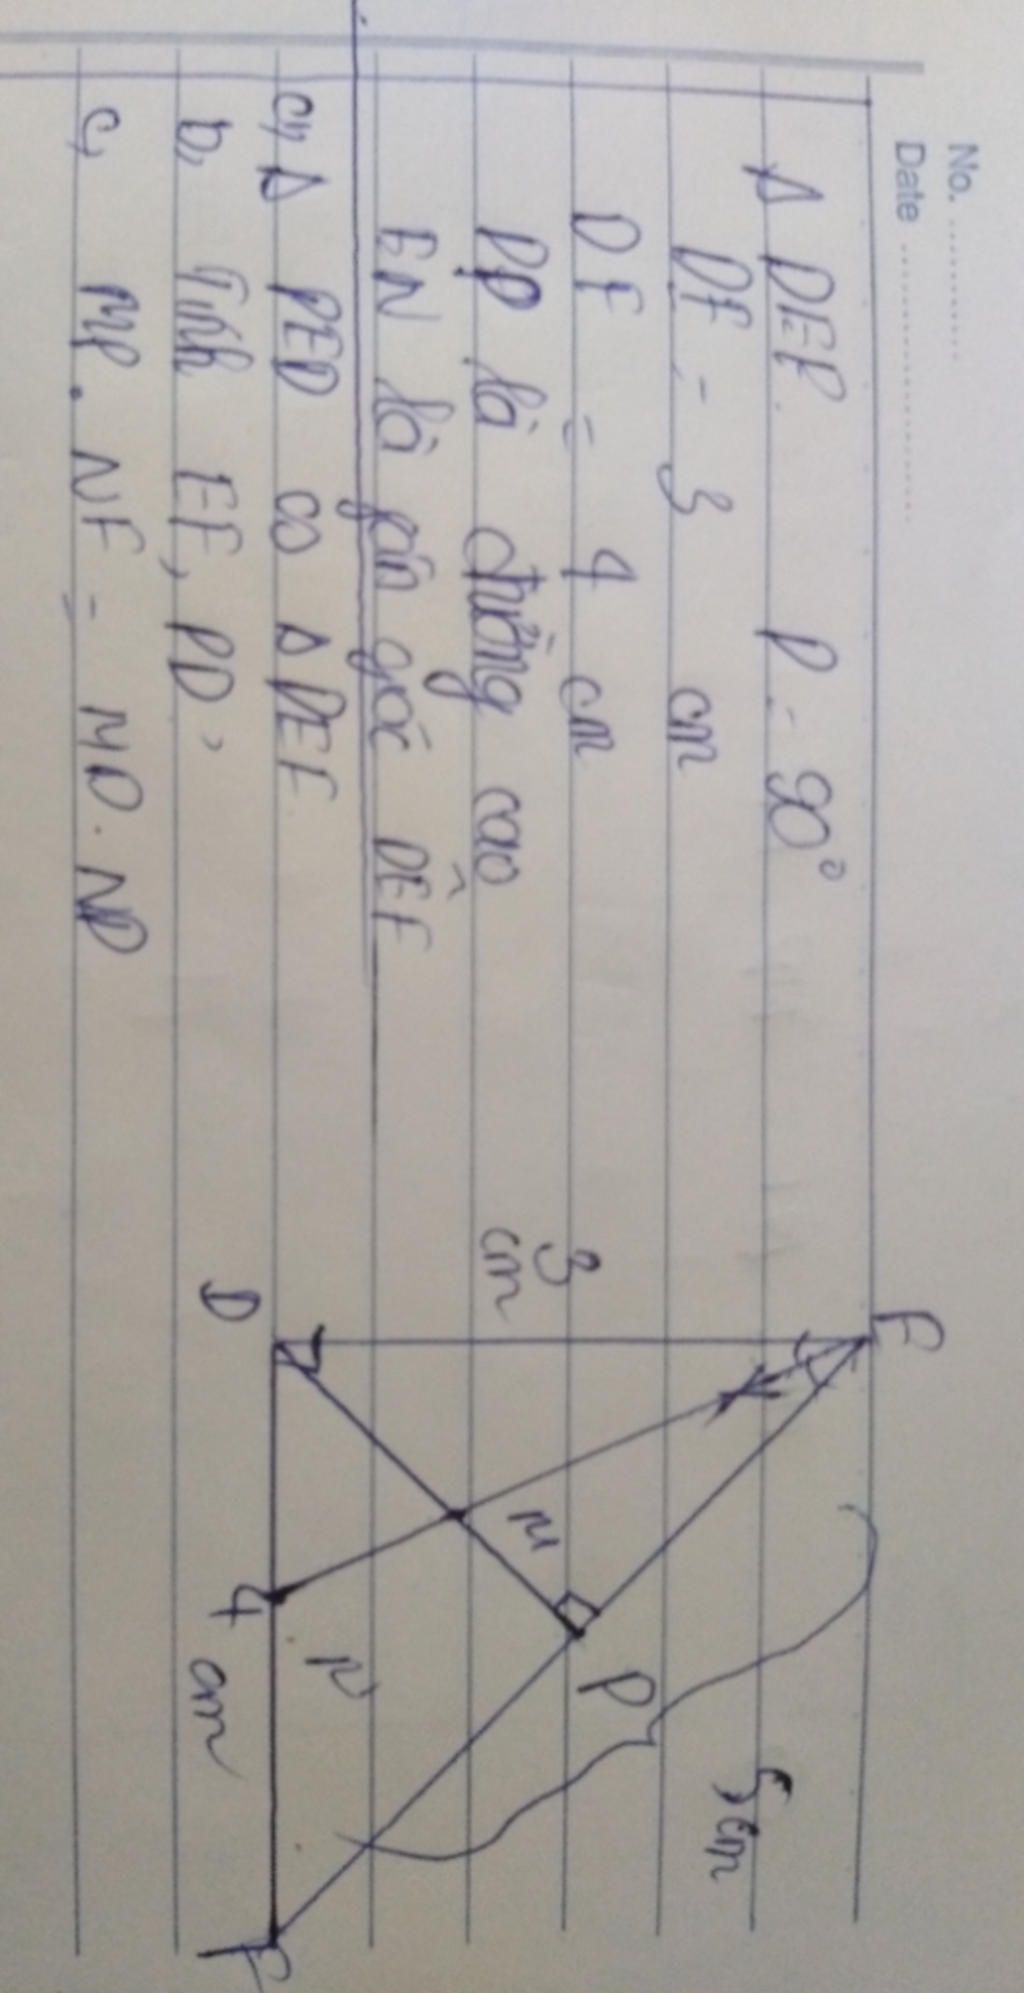 No. ............
Date ............
Δ DEF. D = 90°
DE = 3 cm
DF = 4 cm
PD là đường cao
EN là pân góc DEF
a, Δ PED ∽ Δ DEF
b, Tính EF, PD ?
c, MP. NF = MD. ND
E
3
cm
M
P
5cm
D
4 cm
N
F